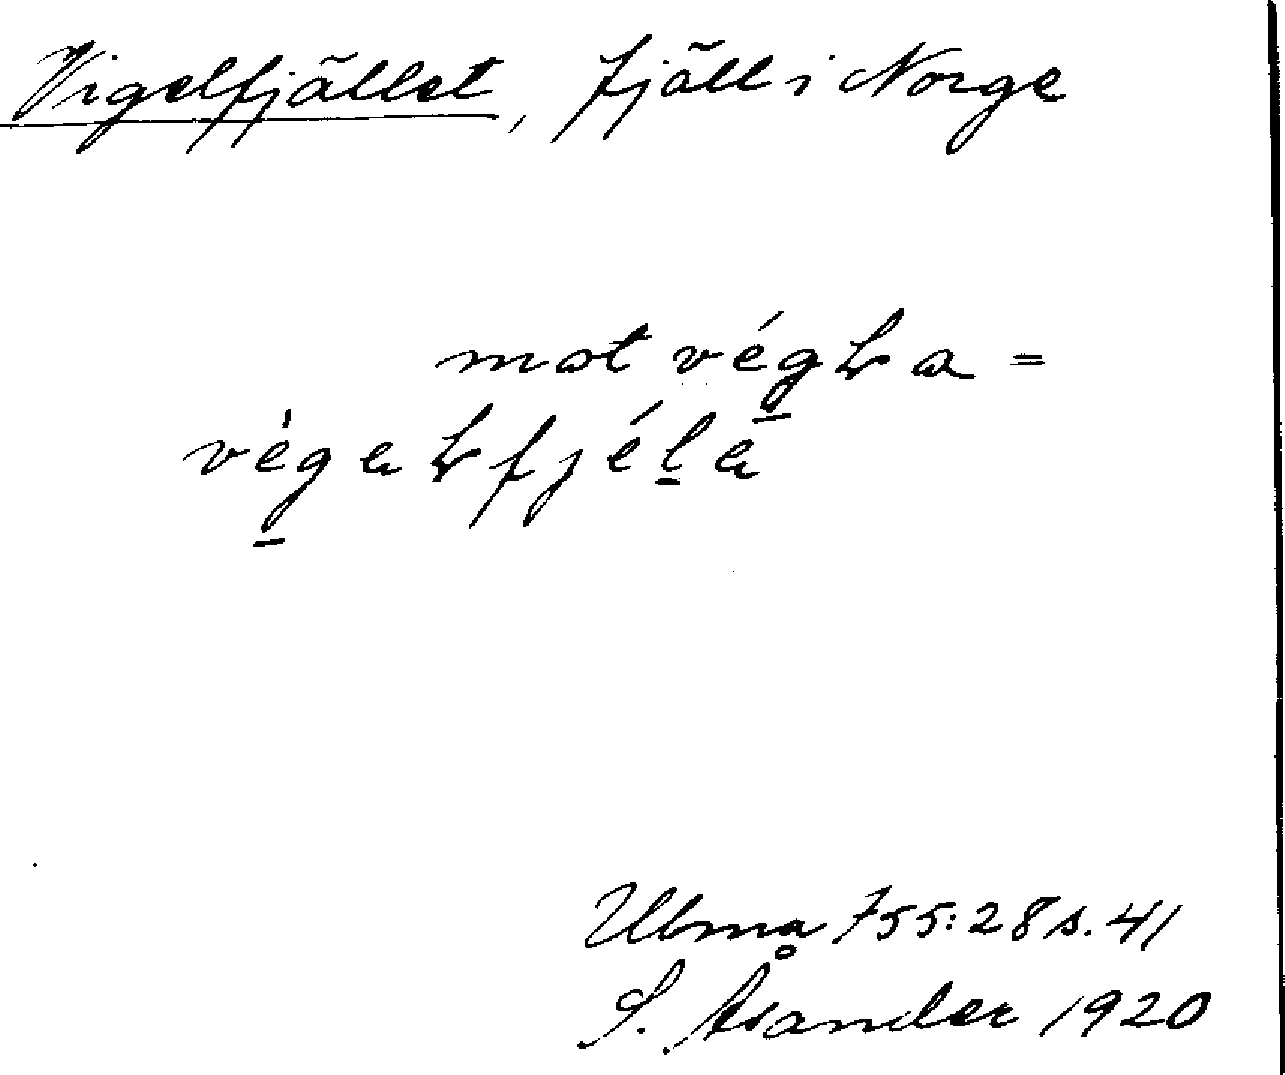 Vigelfjället, fjäll i Norge
mot végɫa =
végaɫfjéla
Ulma 755:28 s. 41
S. Åsander 1920